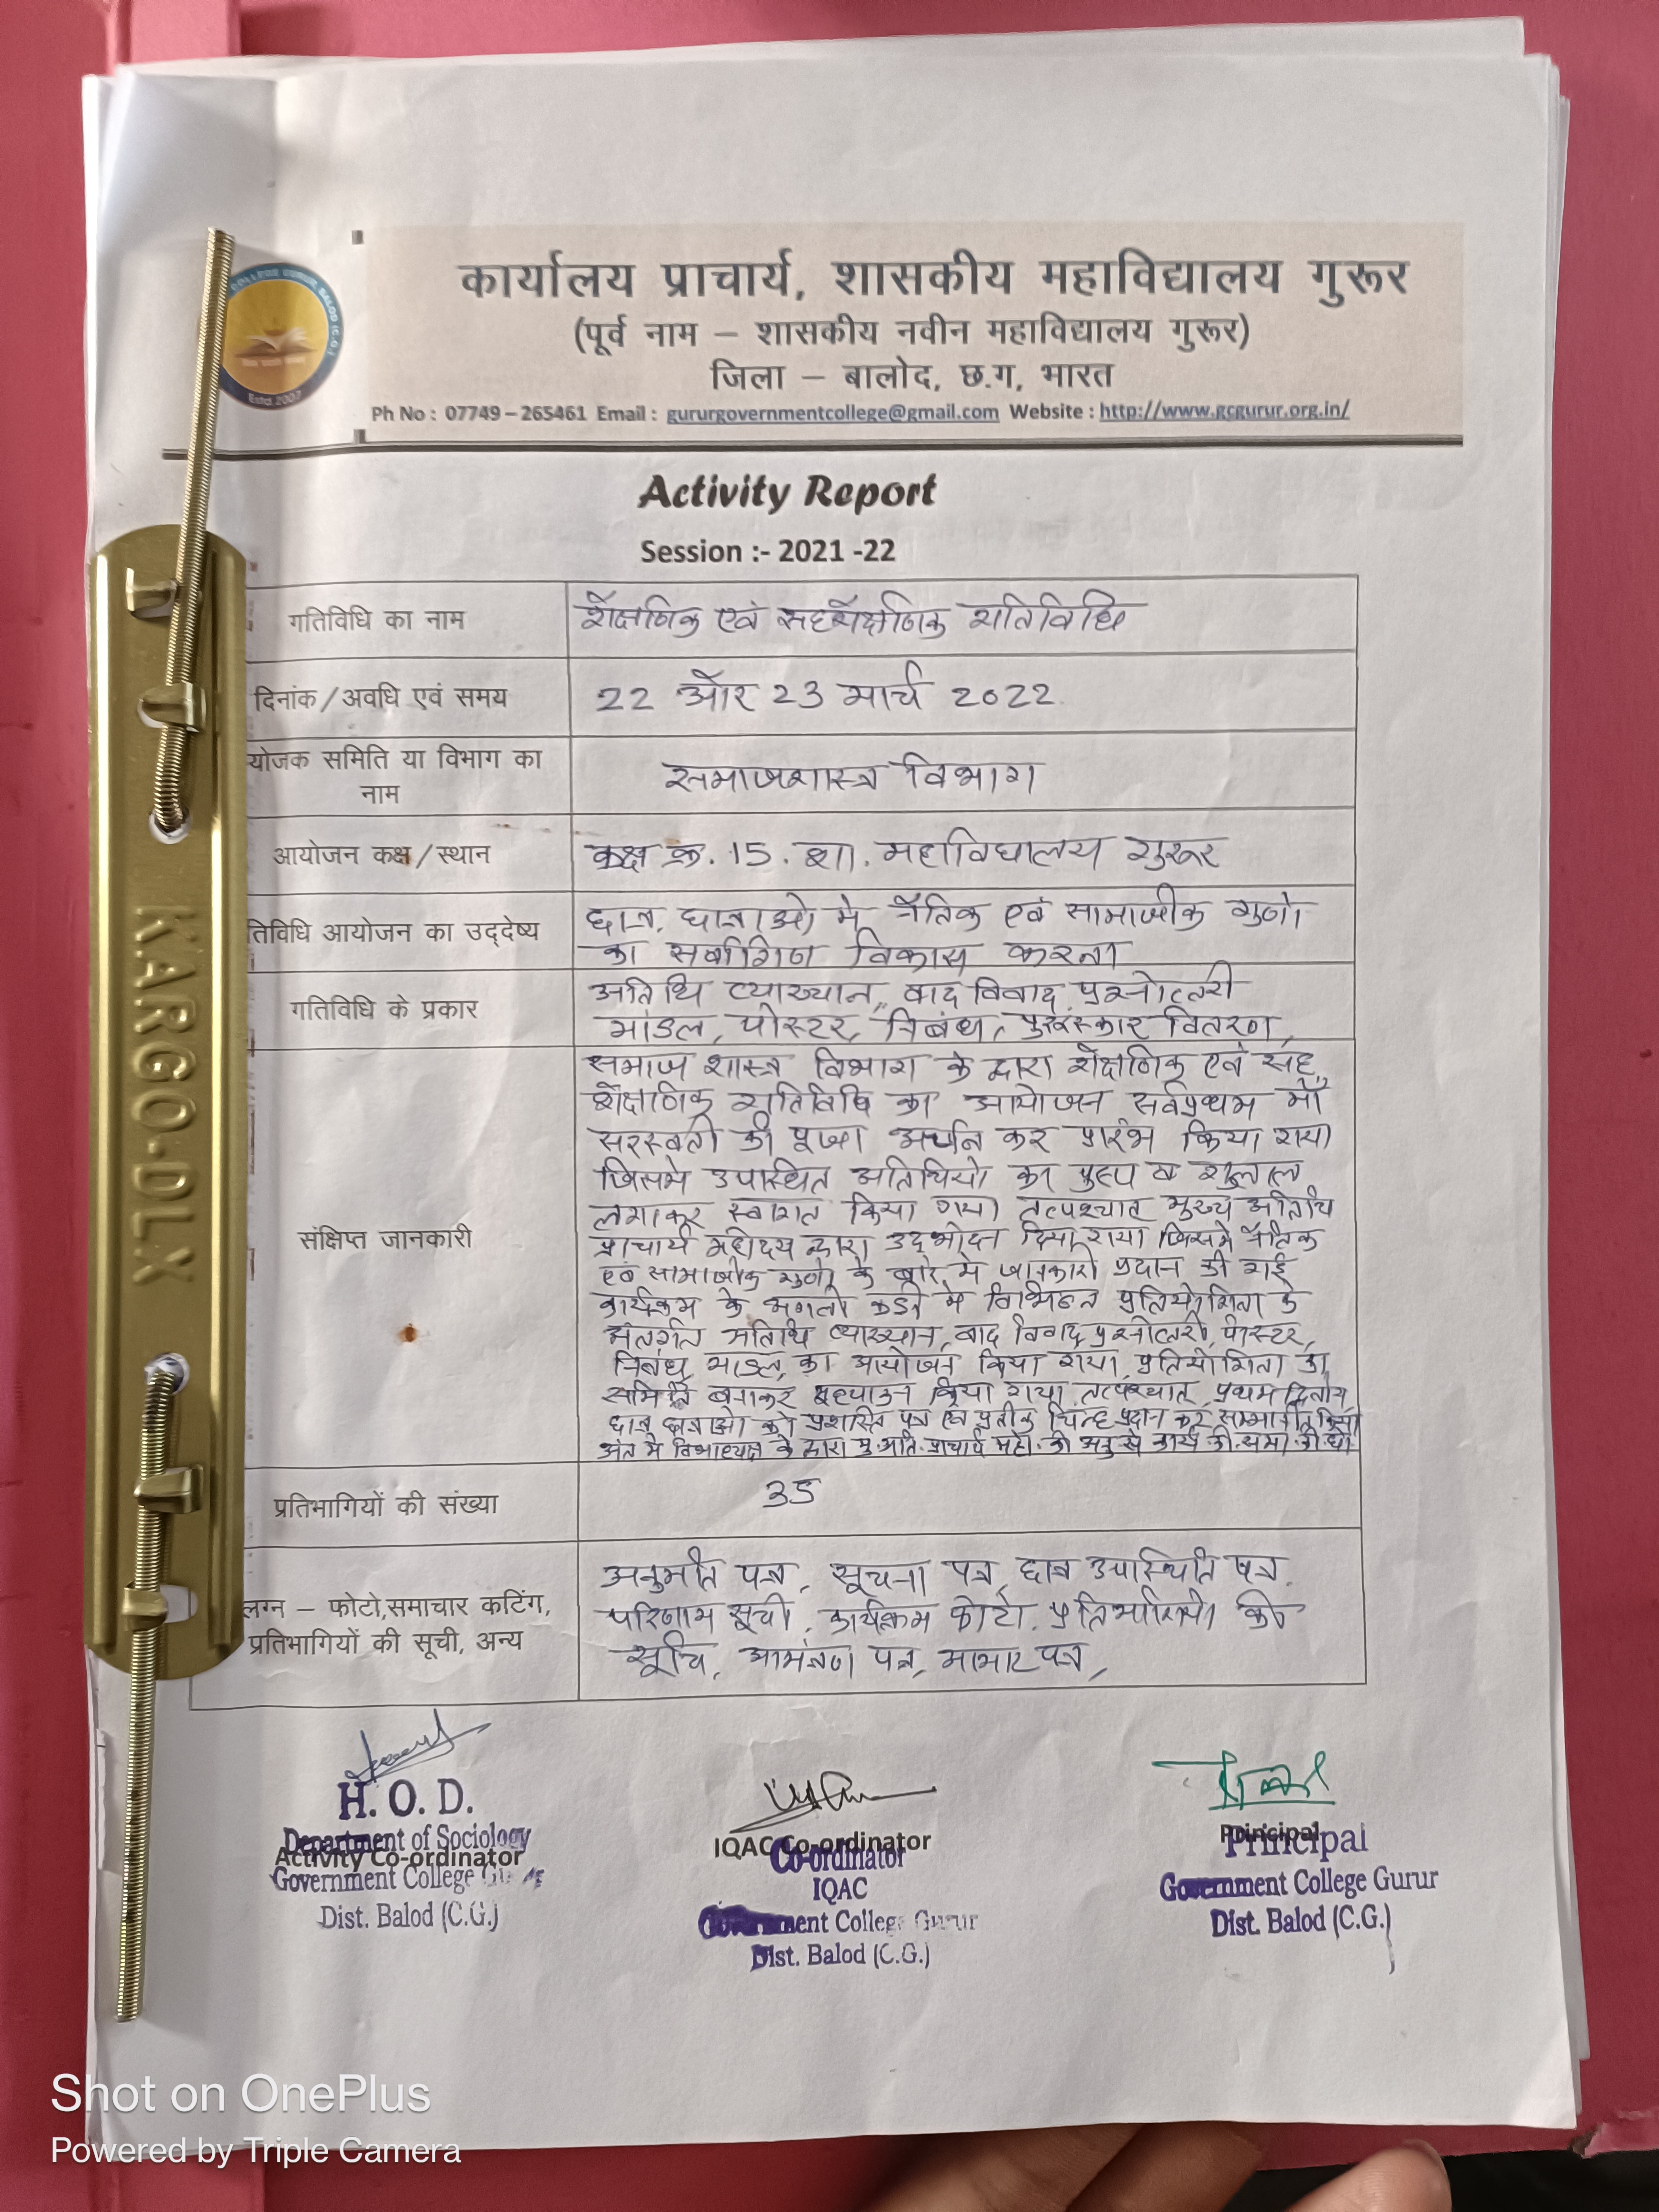 कार्यालय प्राचार्य, शासकीय महाविद्यालय गुरूर
(पूर्व नाम – शासकीय नवीन महाविद्यालय गुरूर)
जिला – बालोद, छ.ग, भारत
Ph No : 07749 – 265461 Email : gururgovernmentcollege@gmail.com Website : http://www.gcgurur.org.in/
Estd. 2007
Activity Report
Session :- 2021 -22
गतिविधि का नाम
शैक्षणिक एवं सहशैक्षणिक गतिविधि
दिनांक/अवधि एवं समय
22 और 23 मार्च 2022
योजक समिति या विभाग का
नाम
समाजशास्त्र विभाग
आयोजन कक्ष/स्थान
कक्ष क्र. 15. शा. महाविद्यालय गुरूर
तिविधि आयोजन का उद्देष्य
छात्र, छात्राओ मे नैतिक एवं सामाजीक गुणो
का सर्वागिण विकास करना
गतिविधि के प्रकार
अतिथि व्याख्यान, वाद विवाद, प्रश्नोत्तरी
माडल, पोस्टर, निबंध, पुरुस्कार वितरण,
संक्षिप्त जानकारी
समाज शास्त्र विभाग के द्वारा शैक्षणिक एवं सह
शैक्षणिक गतिविधि का आयोजन सर्वप्रथम माँ
सरस्वती की पूजा अर्चन कर प्रारंभ किया गया
जिसमे उपस्थित अतिथियो का पुष्प व गुलाल
लगाकर स्वागत किया गया तत्पश्चात मुख्य अतिथि
प्राचार्य महोदय द्वारा उद्भोदन दिया गया जिसमे नैतिक
एवं सामाजीक गुणो के बारे मे जानकारी प्रदान की गई
कार्यक्रम के अगली कडी मे विभिन्न प्रतियोगिता के
अंतर्गत अतिथि व्याख्यान, वाद विवाद प्रश्नोत्तरी, पोस्टर,
निबंध, माडल, का आयोजन किया गया, प्रतियोगिता का
समिति बनाकर किया गया, तत्पश्चात् प्रथम द्वितीय
छात्र छात्राओ को प्रशस्ति पत्र एवं प्रतीक चिन्ह प्रदान कर सम्मानीत किया
अंत मे के द्वारा मु.अति. प्राचार्य महो. की कार्य की
प्रतिभागियों की संख्या
35
लग्न – फोटो,समाचार कटिंग,
प्रतिभागियों की सूची, अन्य
अनुमति पत्र, सूचना पत्र, छात्र उपास्थिति पत्र,
परिणाम सूची, कार्यक्रम फोटो, प्रतिभागियो की
सूचि, आमंत्रण पत्र, आभार पत्र,
H. O. D.
Department of Sociology
Activity Co-ordinator
Government College
Dist. Balod (C.G.)
IQAC Co-ordinator
Co-ordinator
IQAC
Government College Gurur
Dist. Balod (C.G.)
Principal
Principal
Government College Gurur
Dist. Balod (C.G.)
KARGO.DLX
Shot on OnePlus
Powered by Triple Camera